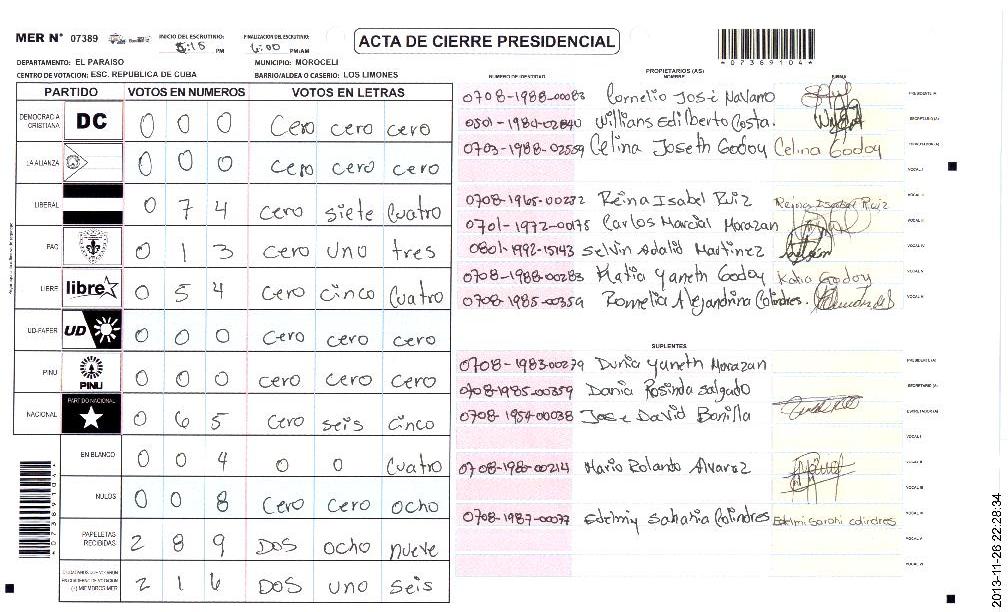 MER N° 07389
INICIO DEL ESCRUTINIO: 5:15 PM
FINALIZACIÓN DEL ESCRUTINIO: 6:00 PM/AM
ACTA DE CIERRE PRESIDENCIAL
*07389104*
DEPARTAMENTO: EL PARAISO
MUNICIPIO: MOROCELI
CENTRO DE VOTACION: ESC. REPUBLICA DE CUBA
BARRIO/ALDEA O CASERIO: LOS LIMONES
PARTIDO VOTOS EN NUMEROS VOTOS EN LETRAS
DEMOCRACIA CRISTIANA DC 0 0 0 Cero cero cero
LA ALIANZA 0 0 0 Cero cero cero
LIBERAL 0 7 4 Cero siete Cuatro
PAC 0 1 3 Cero uno tres
LIBRE libre 0 5 4 Cero cinco Cuatro
UD-FAPER UD 0 0 0 Cero cero cero
PINU PINU 0 0 0 Cero Cero Cero
NACIONAL PARTIDO NACIONAL 0 6 5 Cero seis cinco
EN BLANCO 0 0 4 0 0 Cuatro
NULOS 0 0 8 Cero Cero ocho
PAPELETAS RECIBIDAS 2 8 9 Dos ocho nueve
2 1 6 Dos uno seis
(+) MIEMBROS MER
*07389104*
PROPIETARIOS (AS)
NUMERO DE IDENTIDAD NOMBRE FIRMA
0708-1988-00083 Cornelio José Navarro
0801-1984-02840 Willians Edilberto Costa.
0703-1988-02559 Celina Joseth Godoy Celina Godoy
0708-1965-00232 Reina Isabel Ruiz Reina Isabel Ruiz
0701-1972-00175 Carlos Marcial Morazan
0801-1992-15143 Selvin Adalid Martinez
0708-1988-00283 Katia Yaneth Godoy Katia Godoy
0708-1985-00359 Romelia Alejandrina Colindres.
SUPLENTES
0708-1983-00239 Dunia Yaneth Morazan
0708-1985-00359 Dania Rosinda Salgado
0708-1954-00038 Jose David Bonilla
0708-1980-00214 Mario Rolando Alvarez
0708-1987-00077 Edelmiy Sarahia Colindres Edelmi Sarahi colindres
2013-11-26 22:28:34